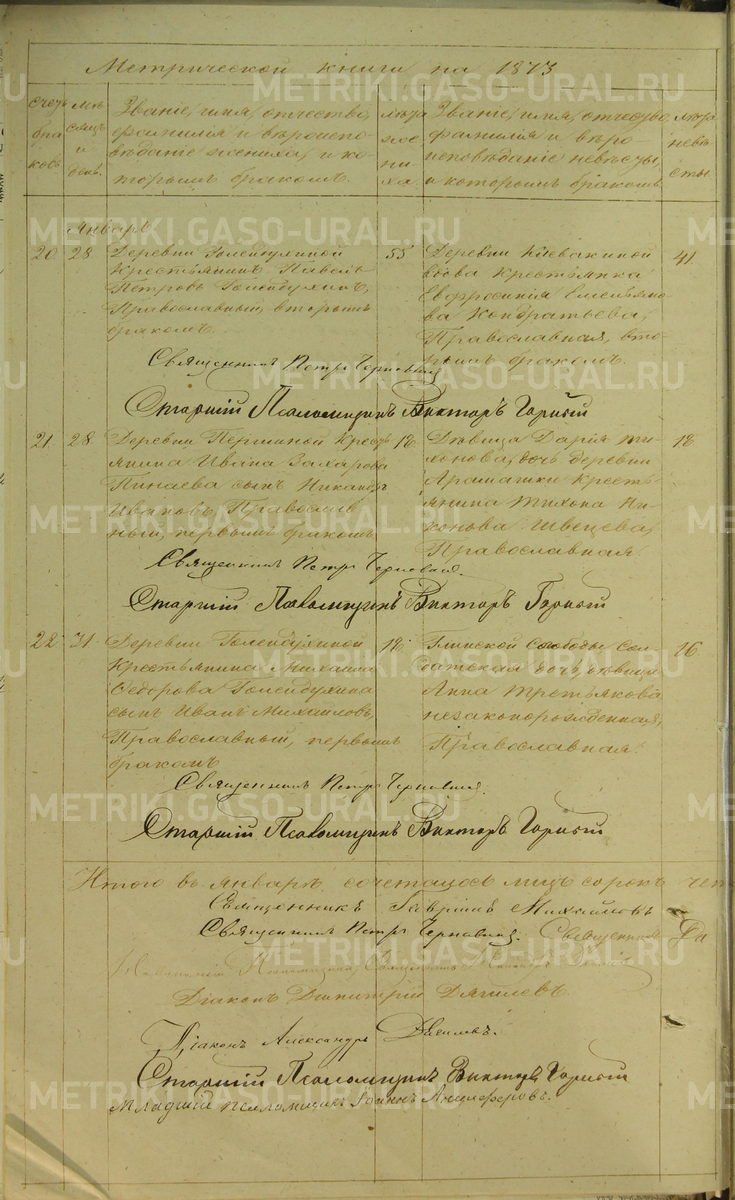 Метрической книги на 1873
счетъ браковъ
мѣсяцъ и день.
Званіе, имя, отчество, фамилія и вѣроисповѣданіе жениха, и которымъ бракомъ.
лѣта жениха.
Званіе, имя, отчество, фамилія и вѣроисповѣданіе невѣсты, и которымъ бракомъ
лѣта невѣсты
Январь
20 28
Деревни Голендухиной
крестьянинъ Павелъ
Петровъ Голендухинъ,
Православный, вторымъ
бракомъ.
55
Деревни
крестьянка
Евфросинія Емельяно-
ва Кондратьева,
Православная, вто-
рымъ бракомъ.
41
Священникъ Петръ
Старшій Псаломщикъ Викторъ Горный
21. 28
Деревни Першиной Кресть
янина Ивана Захарова
Пинаева сынъ Никаноръ
Ивановъ, Православ
ный, первымъ бракомъ
18
Дѣвица Дарія Ти-
хонова, дочь деревни
Арамашки Кресть-
янина Тихона Ни-
конова Швецова,
Православная.
18
Священникъ Петръ
Старшій Псаломщикъ Викторъ Горный
22 31
Деревни Голендухиной
Крестьянина Михаила
Ѳедорова Голендухина
сынъ Иванъ Михаиловъ,
Православный, первымъ
бракомъ
18
Глинской Слободы Сол-
датская дочь, дѣвица
Анна Третьякова
незаконорожденная,
Православная.
16
Священникъ Петръ
Старшій Псаломщикъ Викторъ Горный
Итого въ январѣ сочеталось лицъ сорокъ чет
Священникъ Гавріилъ Михайловъ
Священникъ Петръ Священникъ
Діаконъ Димитрій Дягилевъ.
Діаконъ Александръ
Старшій Псаломщикъ Викторъ Горный
Младшій псаломщикъ Іоаннъ Анциферовъ.
METRIKI.GASO-URAL.RU